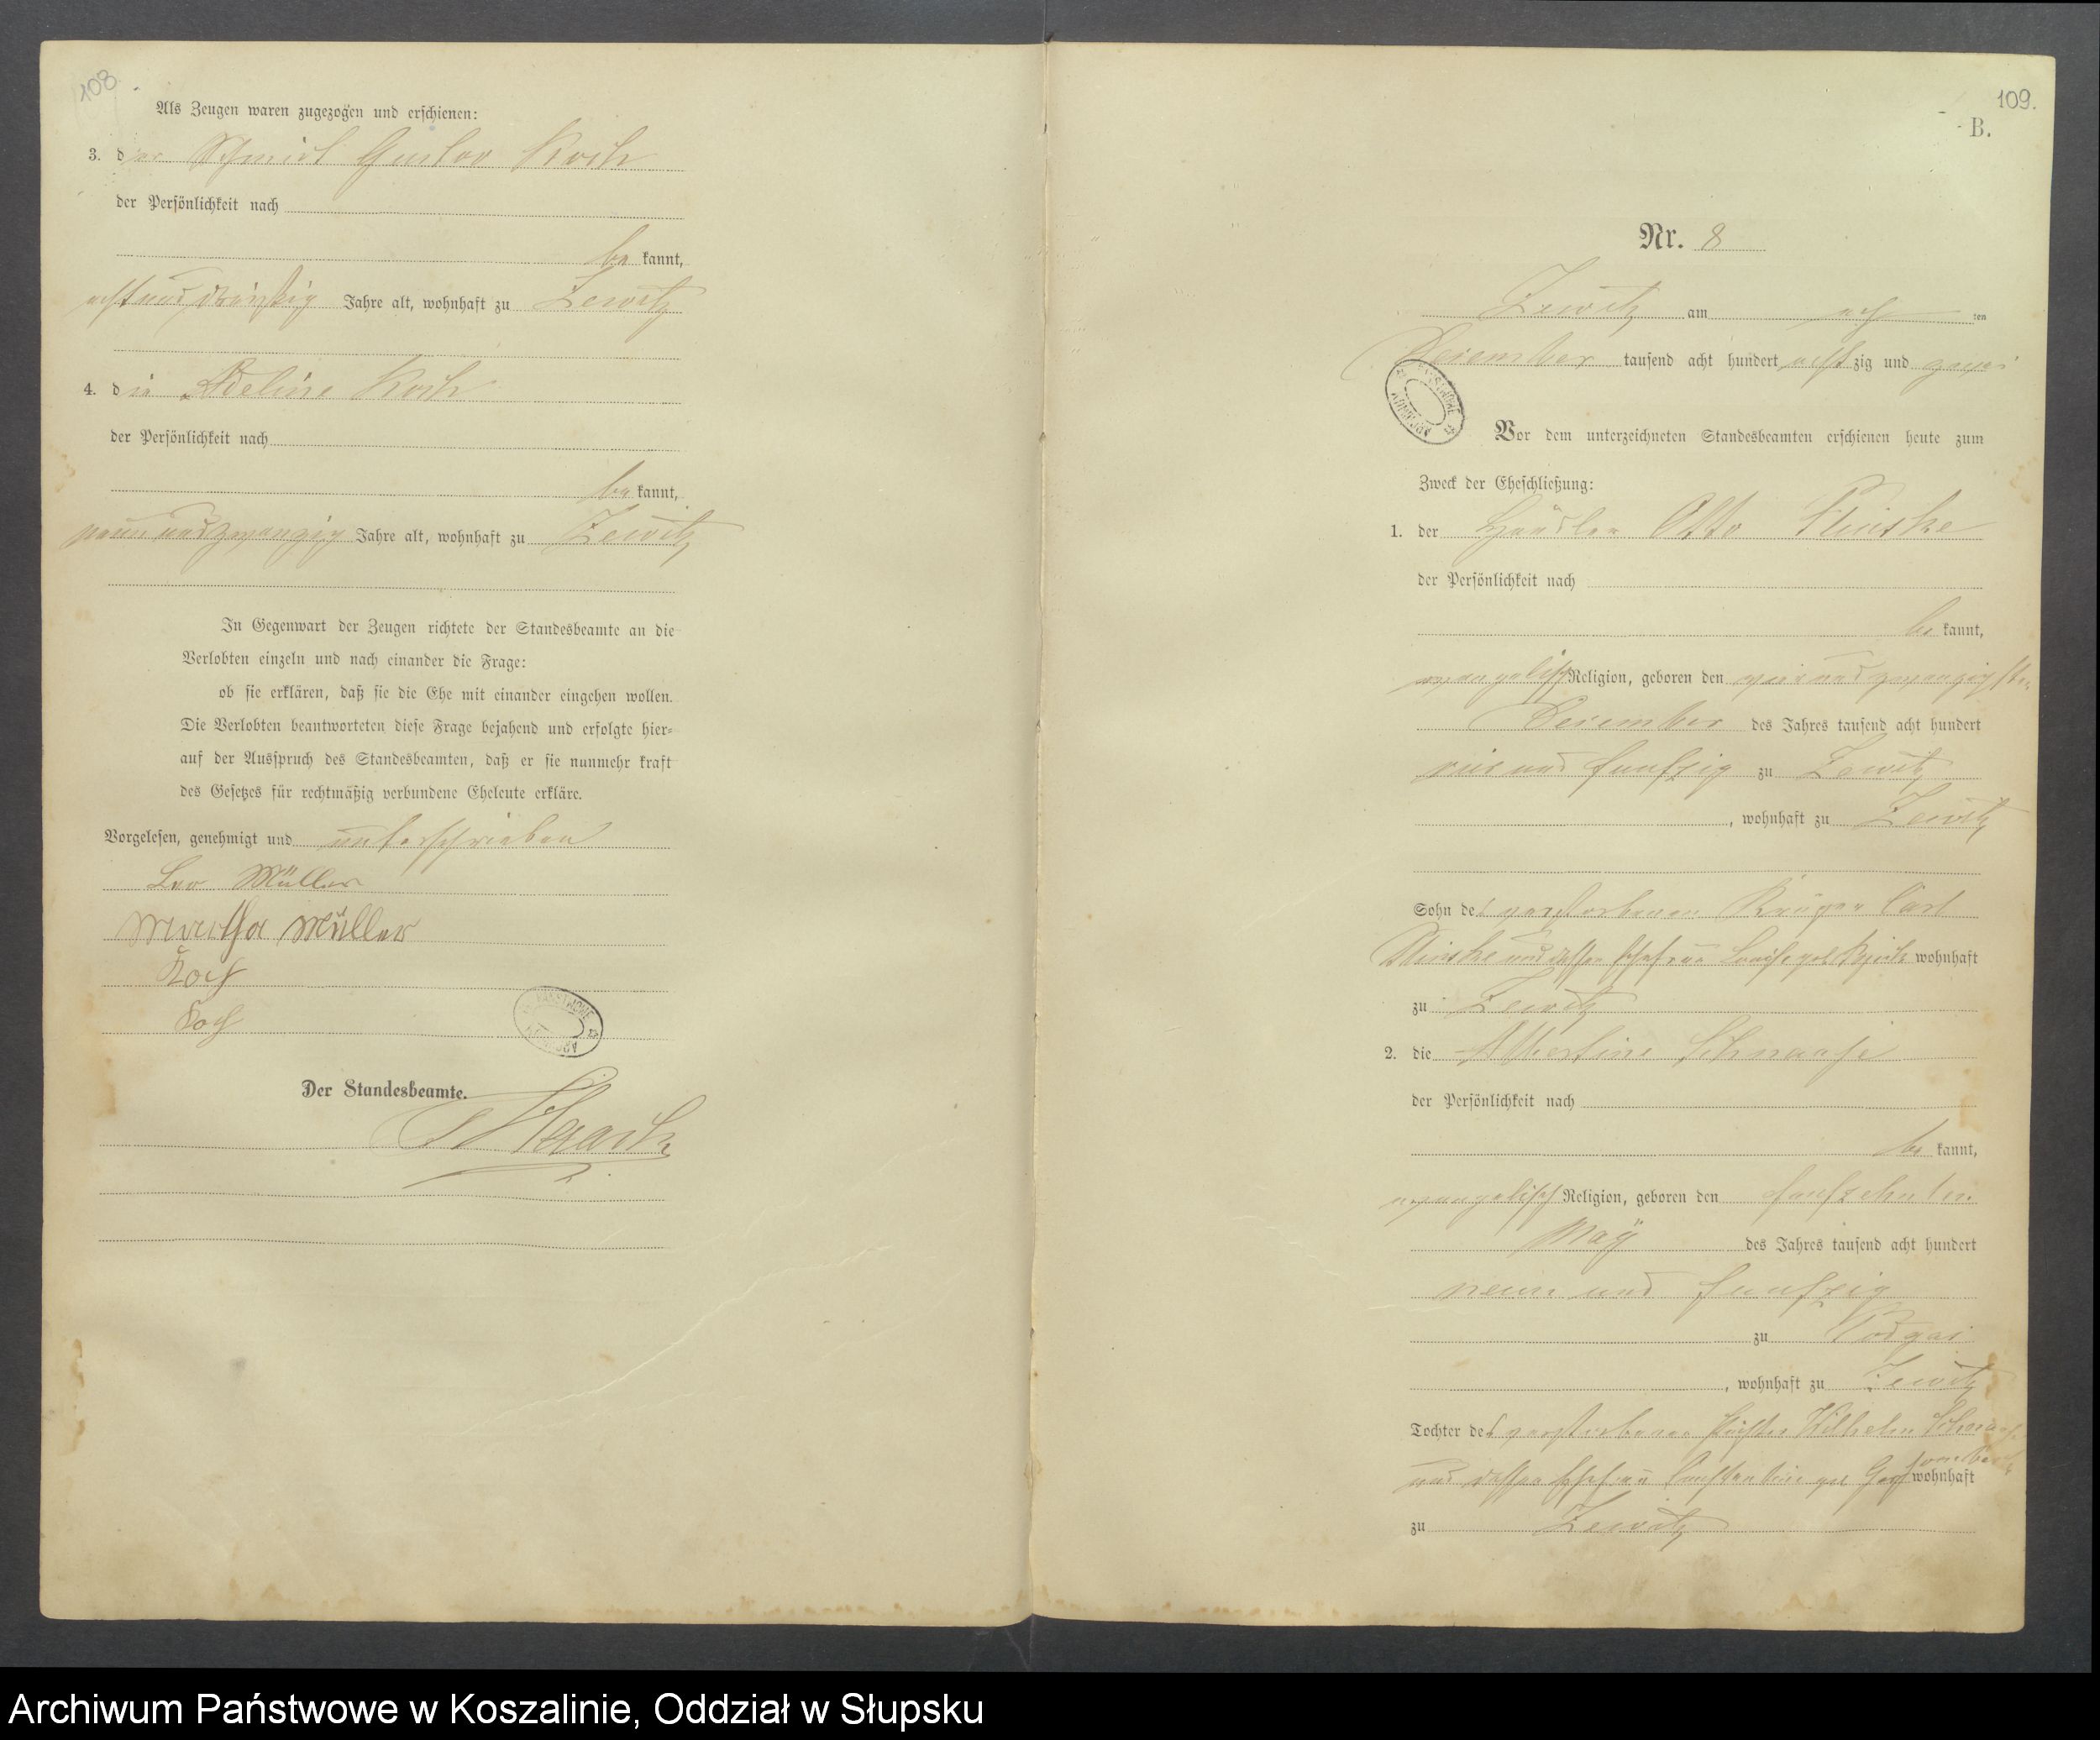 108
Als Zeugen waren zugezogen und erschienen:
3. der Schmied Gustav Koch
der Persönlichkeit nach
be kannt,
acht und dreißig Jahre alt, wohnhaft zu Zewitz
4. die Adeline Koch
der Persönlichkeit nach
be kannt,
neun und zwanzig Jahre alt, wohnhaft zu Zewitz
In Gegenwart der Zeugen richtete der Standesbeamte an die
Verlobten einzeln und nach einander die Frage:
ob sie erklären, daß sie die Ehe mit einander eingehen wollen.
Die Verlobten beantworteten diese Frage bejahend und erfolgte hier-
auf der Ausspruch des Standesbeamten, daß er sie nunmehr kraft
des Gesetzes für rechtmäßig verbundene Eheleute erkläre.
Vorgelesen, genehmigt und unterschrieben
Leo Müller
Martha Müller
Koch
Koch
Der Standesbeamte.
109.
B.
Nr. 8
Zewitz am acht ten
Dezember tausend acht hundert acht zig und zwei
Vor dem unterzeichneten Standesbeamten erschienen heute zum
Zweck der Eheschließung:
1. der Händler Otto
der Persönlichkeit nach
be kannt,
evangelisch Religion, geboren den zwei und zwanzigsten
December des Jahres tausend acht hundert
und funfzig zu Zewitz
, wohnhaft zu Zewitz
Sohn des verstorbenen Carl
und dessen Ehefrau Louise geb wohnhaft
zu Zewitz
2. die Albertine Schnaase
der Persönlichkeit nach
be kannt,
evangelisch Religion, geboren den funfzehnten
May des Jahres tausend acht hundert
neun und funfzig
zu Podgai
, wohnhaft zu Zewitz
Tochter des verstorbenen Wilhelm Schnaase
und dessen Ehefrau geb wohnhaft
zu Zewitz
Archiwum Państwowe w Koszalinie, Oddział w Słupsku